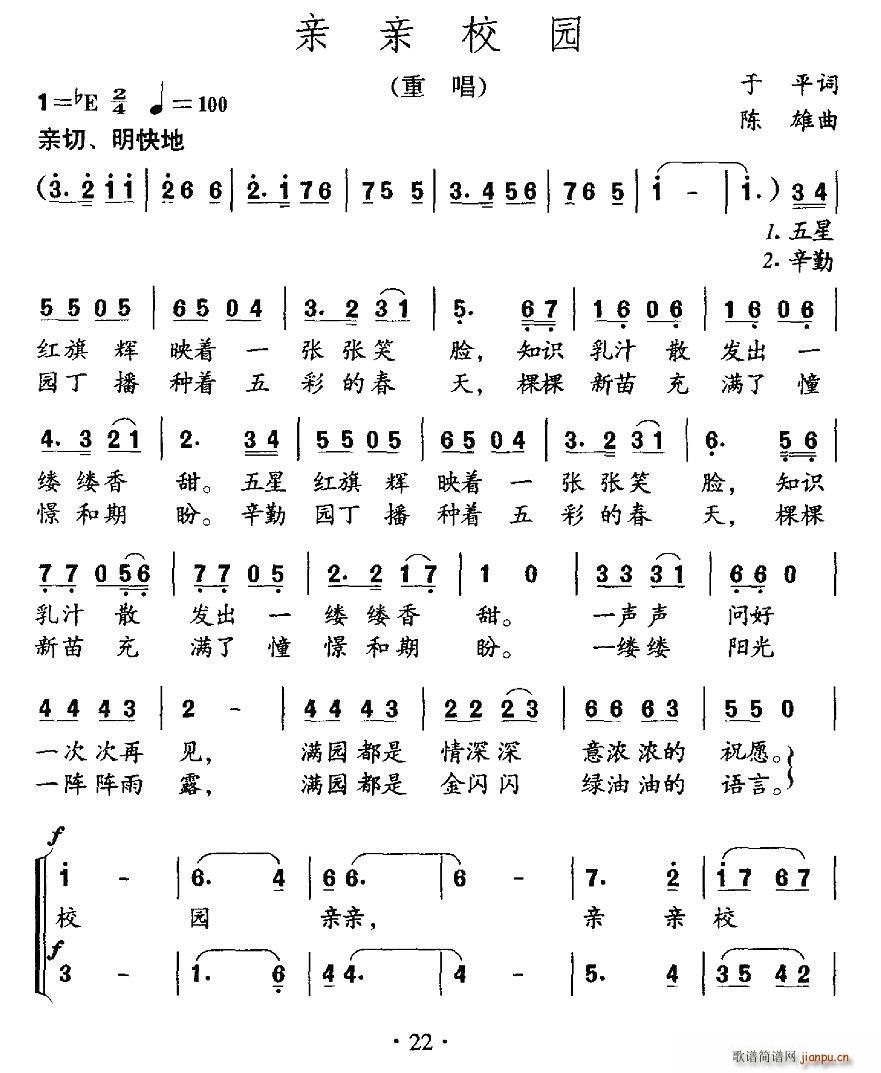 亲亲校园
(重唱)
1=♭E 2/4 ♩=100
于平词
陈雄曲
亲切、明快地
(3. 2 1 1 | 2 6 6 | 2. 1 7 6 | 7 5 5 | 3. 4 5 6 | 7 6 5 | 1 - | 1.) 3 4 |
1. 五星
2. 辛勤
5 5 0 5 | 6 5 0 4 | 3. 2 3 1 | 5. 6 7 | 1 6 0 6 | 1 6 0 6 |
红旗 辉 映着 一 张 张笑 脸, 知识 乳汁 散 发出 一
园丁 播 种着 五 彩 的春 天, 棵棵 新苗 充 满了 憧
4. 3 2 1 | 2. 3 4 | 5 5 0 5 | 6 5 0 4 | 3. 2 3 1 | 6. 5 6 |
缕 缕香 甜。 五星 红旗 辉 映着 一 张 张笑 脸, 知识
憬 和期 盼。 辛勤 园丁 播 种着 五 彩 的春 天, 棵棵
7 7 0 5 6 | 7 7 0 5 | 2. 2 1 7 | 1 0 | 3 3 3 1 | 6 6 0 |
乳汁 散 发出 一 缕 缕香 甜。 一声声 问好
新苗 充 满了 憧 憬 和期 盼。 一缕缕 阳光
4 4 4 3 | 2 - | 4 4 4 3 | 2 2 2 3 | 6 6 6 3 | 5 5 0 |
一次次再 见, 满园都是 情深深 意浓浓的 祝愿。
一阵阵雨 露, 满园都是 金闪闪 绿油油的 语言。
f
1 - | 6. 4 | 6 6. | 6 - | 7. 2 | 1 7 6 7 |
校 园 亲亲, 亲 亲 校
f
3 - | 1. 6 | 4 4. | 4 - | 5. 4 | 3 5 4 2 |
·22·
歌谱简谱网 jianpu.cn